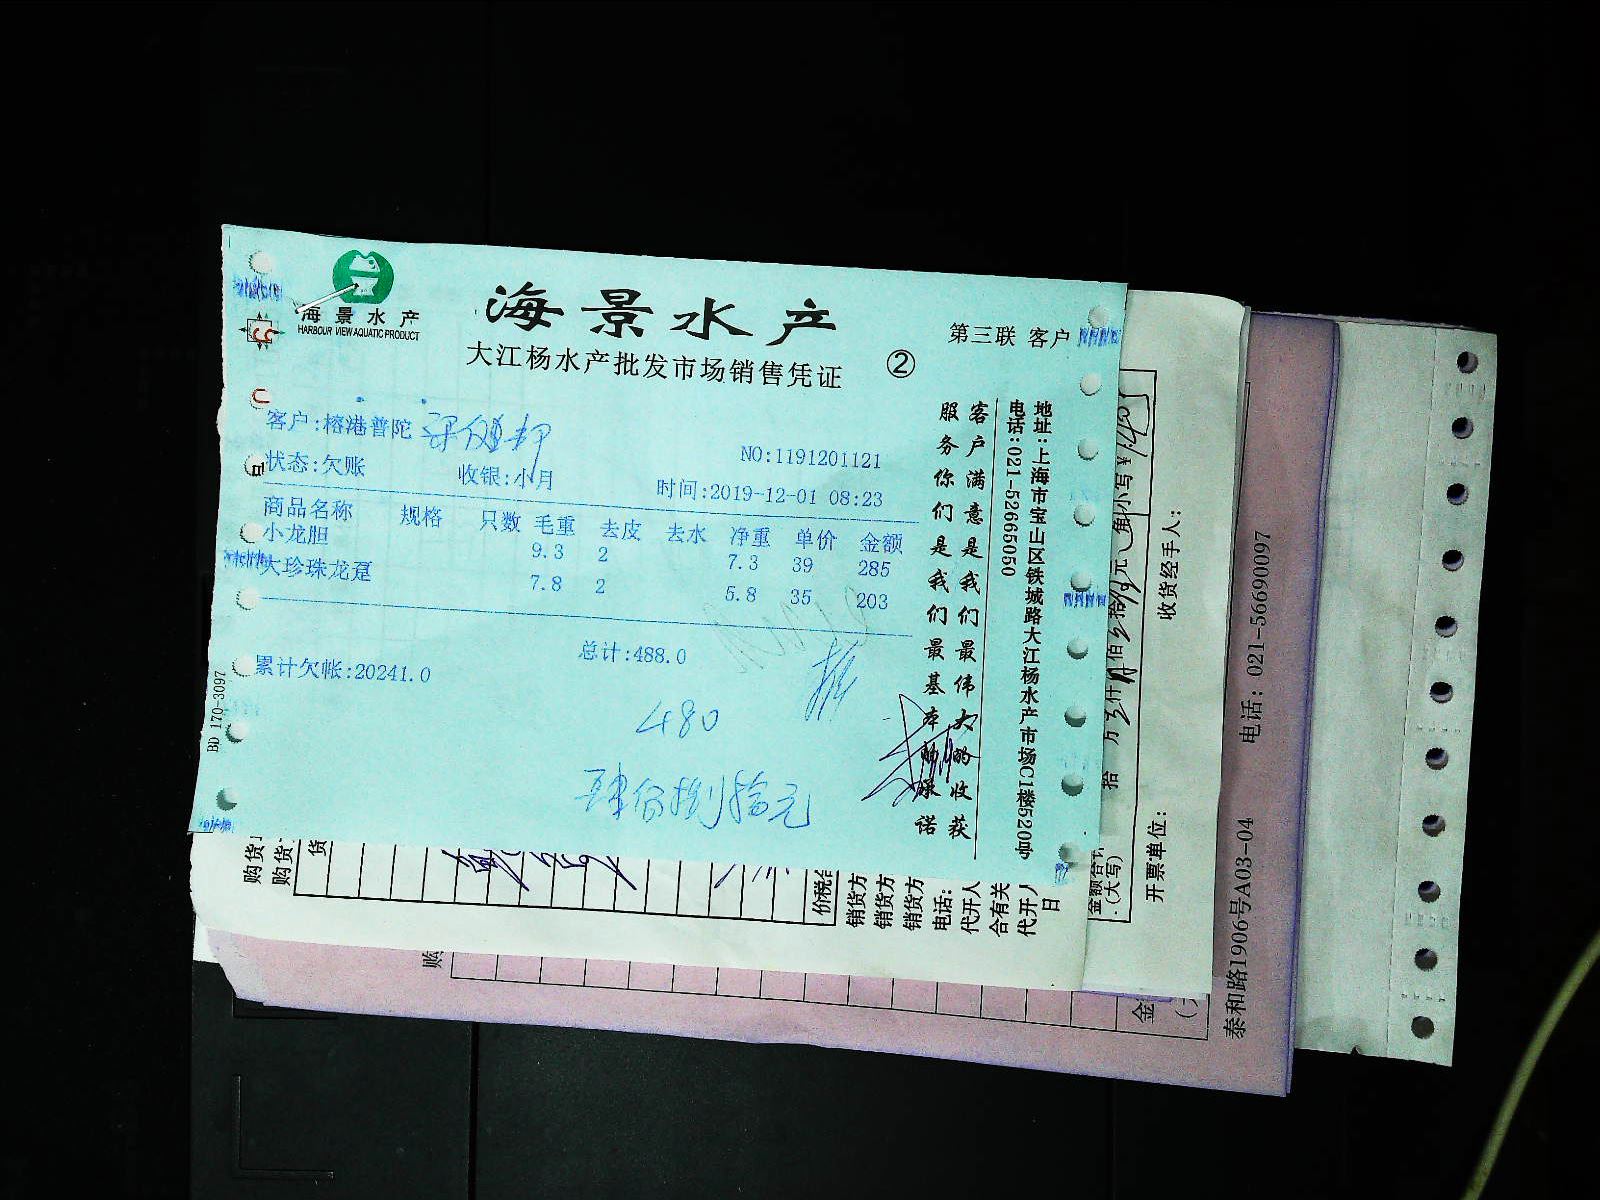 海景水产
HARBOUR VIEW AQUATIC PRODUCT
海景水产
大江杨水产批发市场销售凭证
②
第三联 客户
客户:榕港普陀
NO:1191201121
状态:欠账 收银:小月 时间:2019-12-01 08:23
商品名称 规格 只数 毛重 去皮 去水 净重 单价 金额
小龙胆 9.3 2 7.3 39 285
大珍珠龙趸 7.8 2 5.8 35 203
累计欠帐:20241.0 总计:488.0
480
肆佰捌拾元
客户满意是我们最伟大的收获
服务你们是我们最基本的承诺
地址:上海市宝山区铁城路大江杨水产市场C1楼520号
电话:021-52665050
BD 170-3097
购货
购货
货
价税合
销货方
销货方
销货方
电话:
代开人
合有关
代开人
日
金额合计
(大写)
拾 万 仟 佰 拾 元 角
小写¥
开票单位:
收货经手人:
购
金
泰和路1906号A03-04 电话: 021-56690097